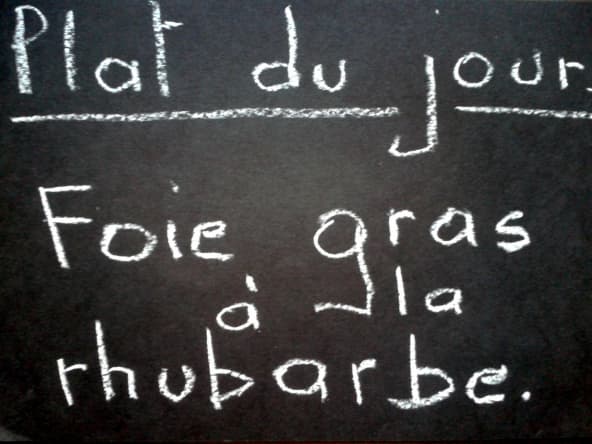 Plat du jour.
Foie gras
à la
rhubarbe.